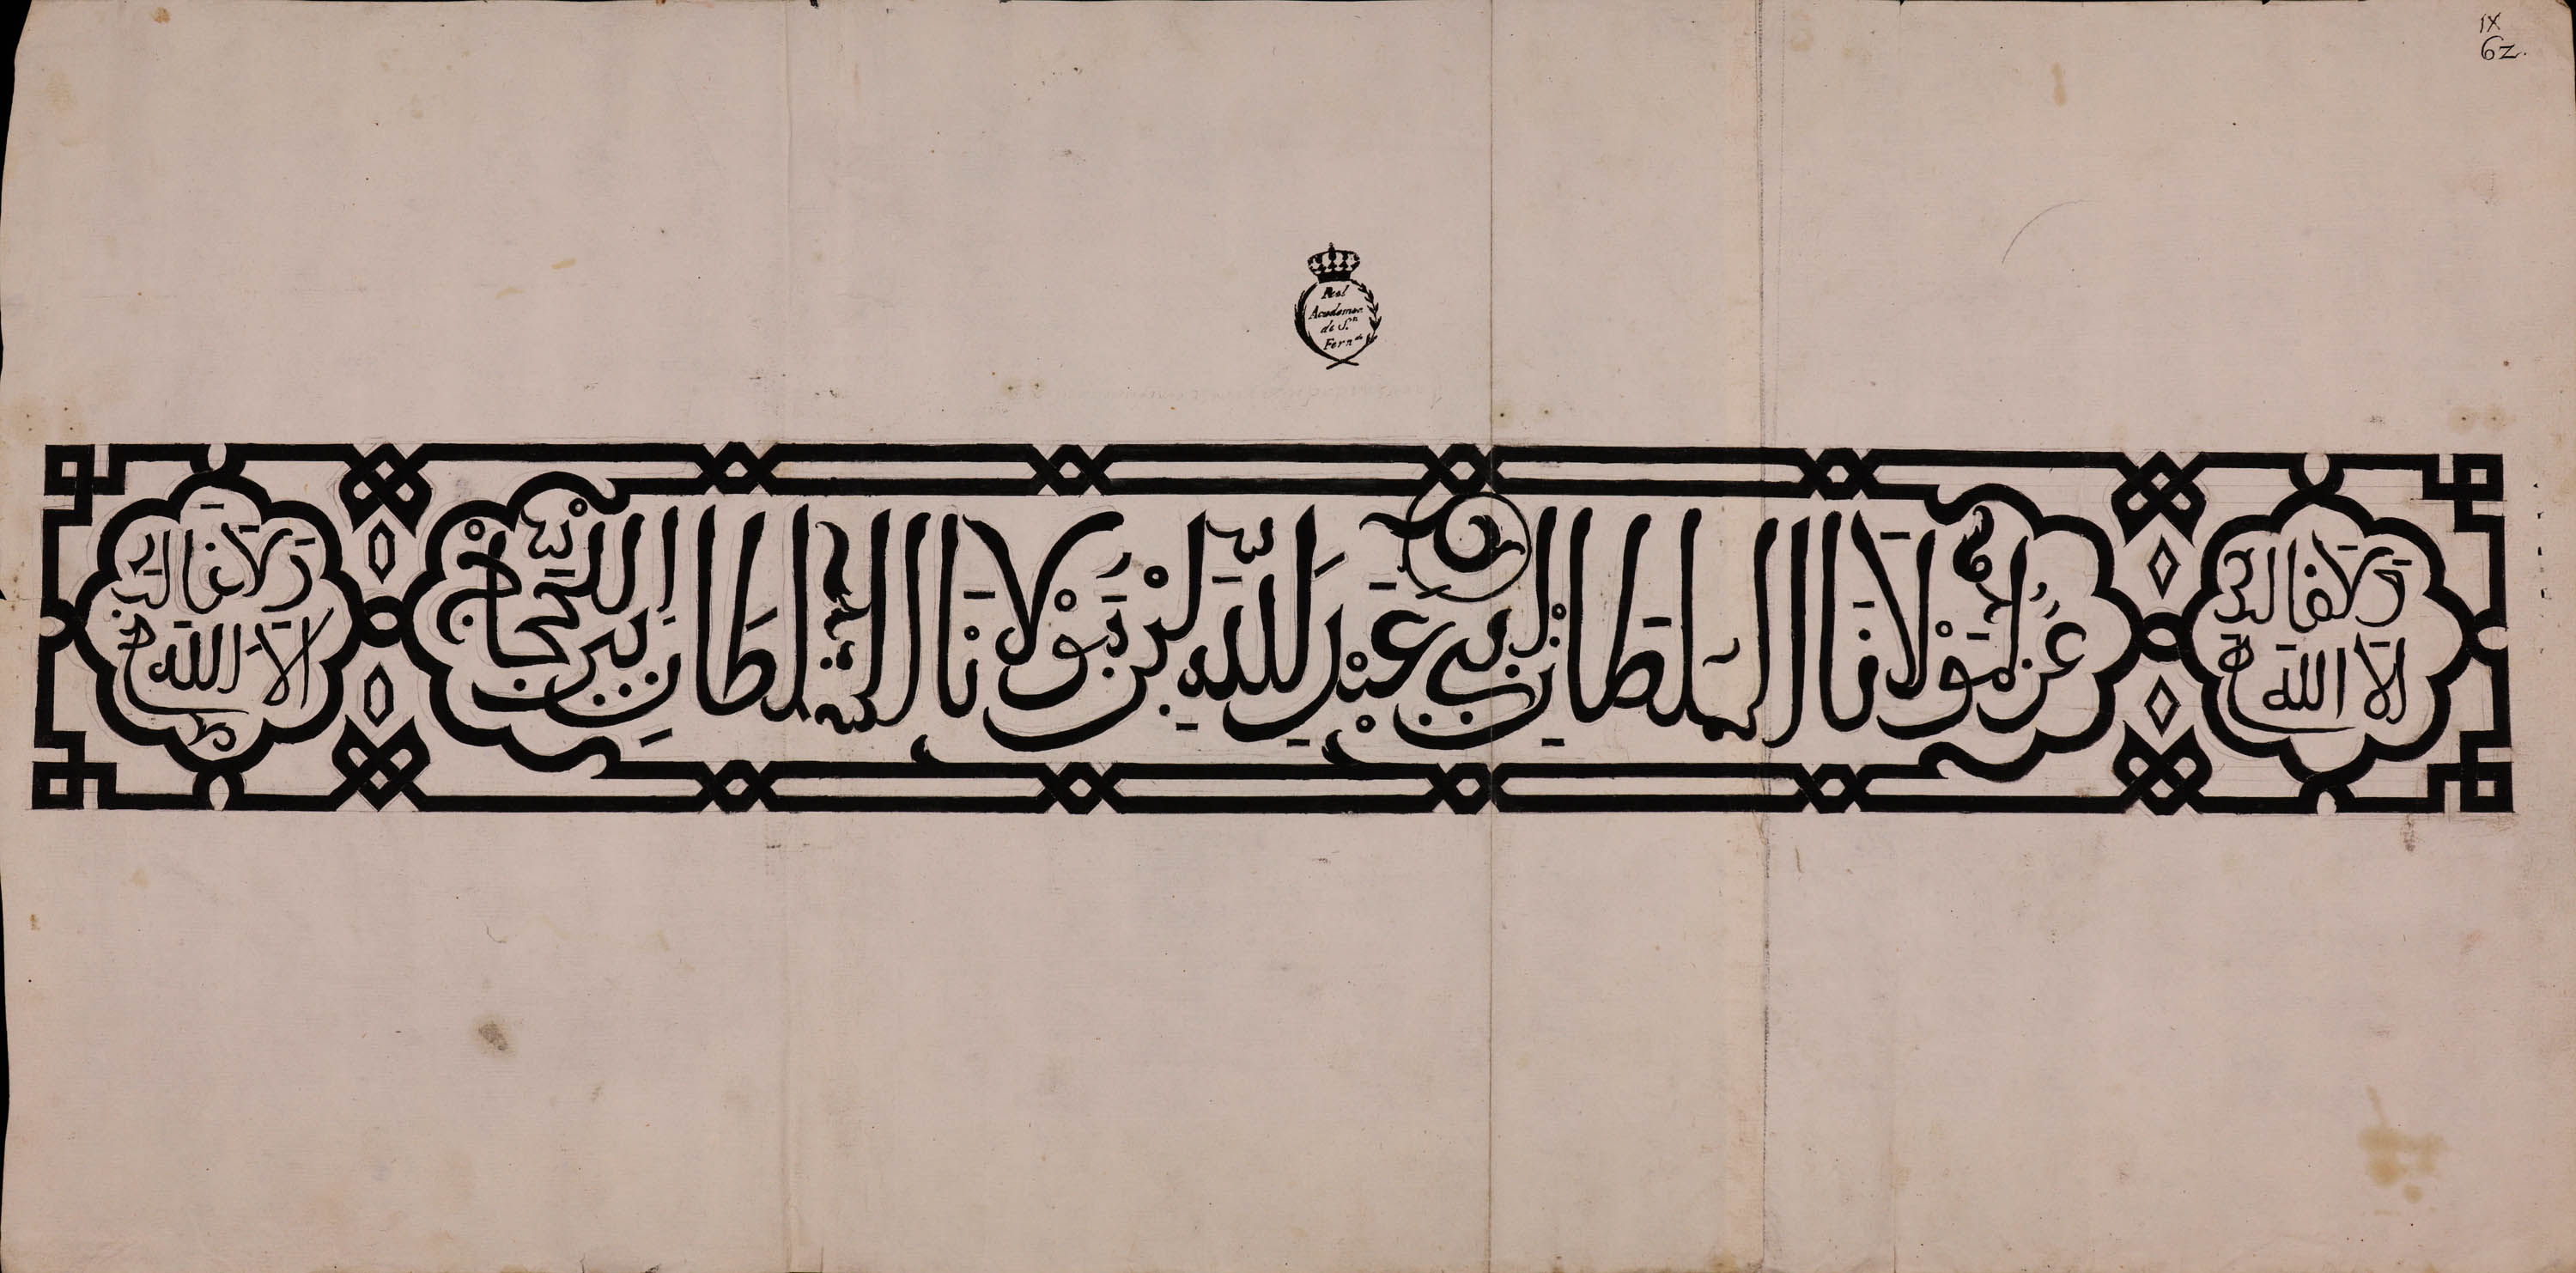 IX
62.
Real
Academia
de S.n
Fern.do
ولا غالب
الا الله
عز لمولانا السلطان ابي عبد الله ابن مولانا السلطان ابي الحجاج
ولا غالب
الا الله